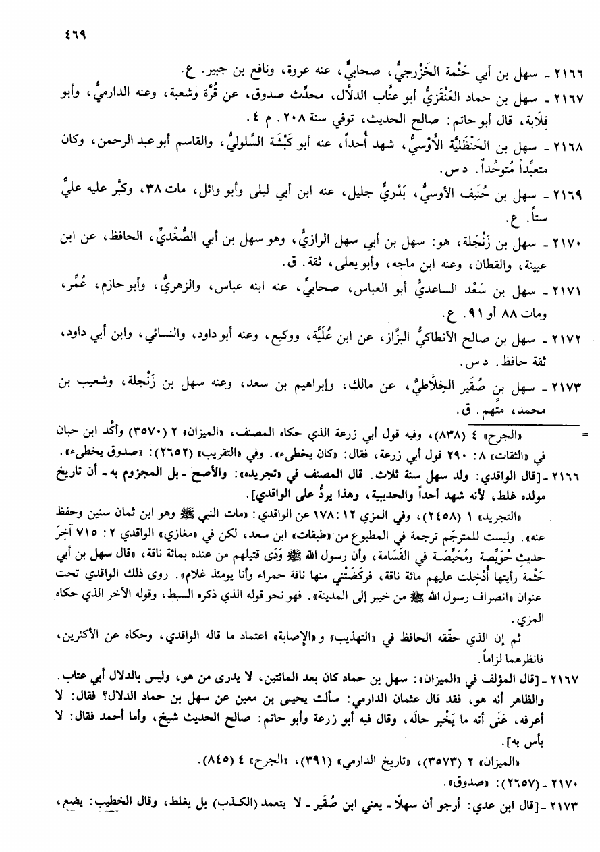 ٤٦٩
٢١٦٦ ـ سهل بن أبي حَثْمة الخَزْرجيُّ، صحابيٌّ، عنه عروة، ونافع بن جبير. ع.
٢١٦٧ ـ سهل بن حماد العَنْقَزيُّ أبو عتَّاب الدلَّال، محدِّث صدوق، عن قُرَّة وشعبة، وعنه الدارميُّ، وأبو
قِلابة، قال أبو حاتم: صالح الحديث، توفي سنة ٢٠٨. م ٤.
٢١٦٨ ـ سهل بن الحَنْظَليَّة الأَوْسيُّ، شهد أُحداً، عنه أبو كَبْشَة السَّلوليُّ، والقاسم أبو عبد الرحمن، وكان
متعبِّداً مُتوحِّداً. د س.
٢١٦٩ ـ سهل بن حُنَيف الأوسيُّ، بَدْريٌّ جليل، عنه ابن أبي ليلى وأبو وائل، مات ٣٨، وكبَّر عليه عليٌّ
ستاً. ع.
٢١٧٠ ـ سهل بن زَنْجَلة، هو: سهل بن أبي سهل الرازيُّ، وهو سهل بن أبي الصُّغْديِّ، الحافظ، عن ابن
عيينة، والقطان، وعنه ابن ماجه، وأبو يعلى، ثقة. ق.
٢١٧١ ـ سهل بن سَعْد الساعديُّ أبو العباس، صحابيٌّ، عنه ابنه عباس، والزهريُّ، وأبو حازم، عُمِّر،
ومات ٨٨ أو ٩١. ع.
٢١٧٢ ـ سهل بن صالح الأنطاكيُّ البزَّاز، عن ابن عُلَيَّة، ووكيع، وعنه أبو داود، والنسائي، وابن أبي داود،
ثقة حافظ. د س.
٢١٧٣ ـ سهل بن صُقَير الخِلَاطيُّ، عن مالك، وإبراهيم بن سعد، وعنه سهل بن زَنْجلة، وشعيب بن
محمد، متَّهم. ق.
= «الجرح» ٤ (٨٣٨)، وفيه قول أبي زرعة الذي حكاه المصنف، «الميزان» ٢ (٣٥٧٠) وأكَّد ابن حبان
في «الثقات» ٨: ٢٩٠ قول أبي زرعة، فقال: «كان يخطىء». وفي «التقريب» (٢٦٥٢): «صدوق يخطىء».
٢١٦٦ ـ [قال الواقدي: ولد سهل سنة ثلاث. قال المصنف في «تجريده»: والأصح ـ بل المجزوم به ـ أن تاريخ
مولده غلط، لأنه شهد أُحداً والحديبية، وهذا يردُّ على الواقدي].
«التجريد» ١ (٢٤٥٨)، وفي المزي ١٢: ١٧٨ عن الواقدي: «مات النبي ﷺ وهو ابن ثمان سنين وحفظ
عنه». وليست للمترجَم ترجمة في المطبوع من «طبقات» ابن سعد، لكن في «مغازي» الواقدي ٢: ٧١٥ آخرَ
حديث حُوَيِّصة ومُحَيِّصة في القَسَامة، وأن رسول الله ﷺ وَدَى قتيلهم من عنده بمائة ناقة، «قال سهل بن أبي
حَثْمة رأيتها أُدْخِلت عليهم مائة ناقة، فركَضَتْني منها ناقة حمراء وأنا يومئذ غلام». روى ذلك الواقدي تحت
عنوان «انصراف رسول الله ﷺ من خيبر إلى المدينة». فهو نحو قوله الذي ذكره السبط، وقوله الآخر الذي حكاه
المزي.
ثم إن الذي حقَّقه الحافظ في «التهذيب» و«الإصابة» اعتماد ما قاله الواقدي، وحكاه عن الأكثرين،
فانظرهما لزاماً.
٢١٦٧ ـ [قال المؤلف في «الميزان»: سهل بن حماد كان بعد المائتين، لا يدرى من هو، وليس بالدلال أبي عتاب.
والظاهر أنه هو، فقد قال عثمان الدارمي: سألت يحيى بن معين عن سهل بن حماد الدلال؟ فقال: لا
أعرفه، عَنَى أنه ما يَخْبر حالَه، وقال فيه أبو زرعة وأبو حاتم: صالح الحديث شيخ، وأما أحمد فقال: لا
بأس به].
«الميزان» ٢ (٣٥٧٣)، «تاريخ الدارمي» (٣٩١)، «الجرح» ٤ (٨٤٥).
٢١٧٠ ـ (٢٦٥٧): «صدوق».
٢١٧٣ ـ [قال ابن عدي: أرجو أن سهلًا ـ يعني ابن صُقَير ـ لا يتعمد (الكذب) بل يغلط، وقال الخطيب: يضع،